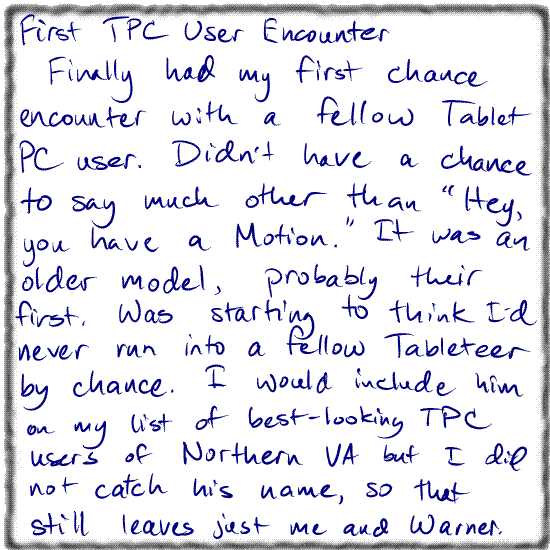 First TPC User Encounter
Finally had my first chance
encounter with a fellow Tablet
PC user. Didn't have a chance
to say much other than "Hey,
you have a Motion." It was an
older model, probably their
first. Was starting to think I'd
never run into a fellow Tableteer
by chance. I would include him
on my list of best-looking TPC
users of Northern VA but I did
not catch his name, so that
still leaves just me and Warner.